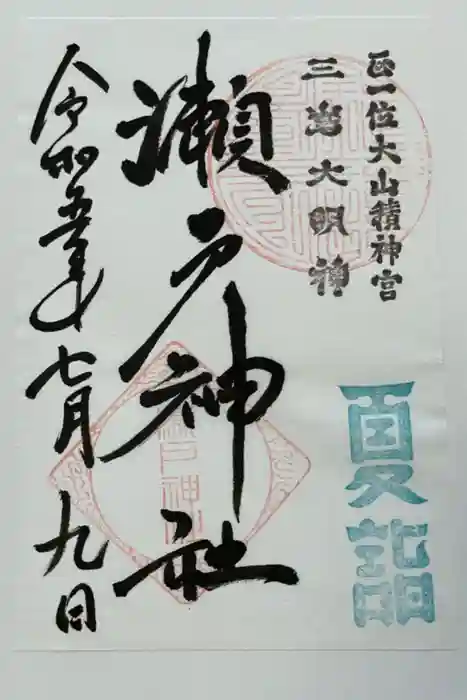 正一位大山積神宮
三島大明神
瀬戸神社
令和五年七月九日
夏詣